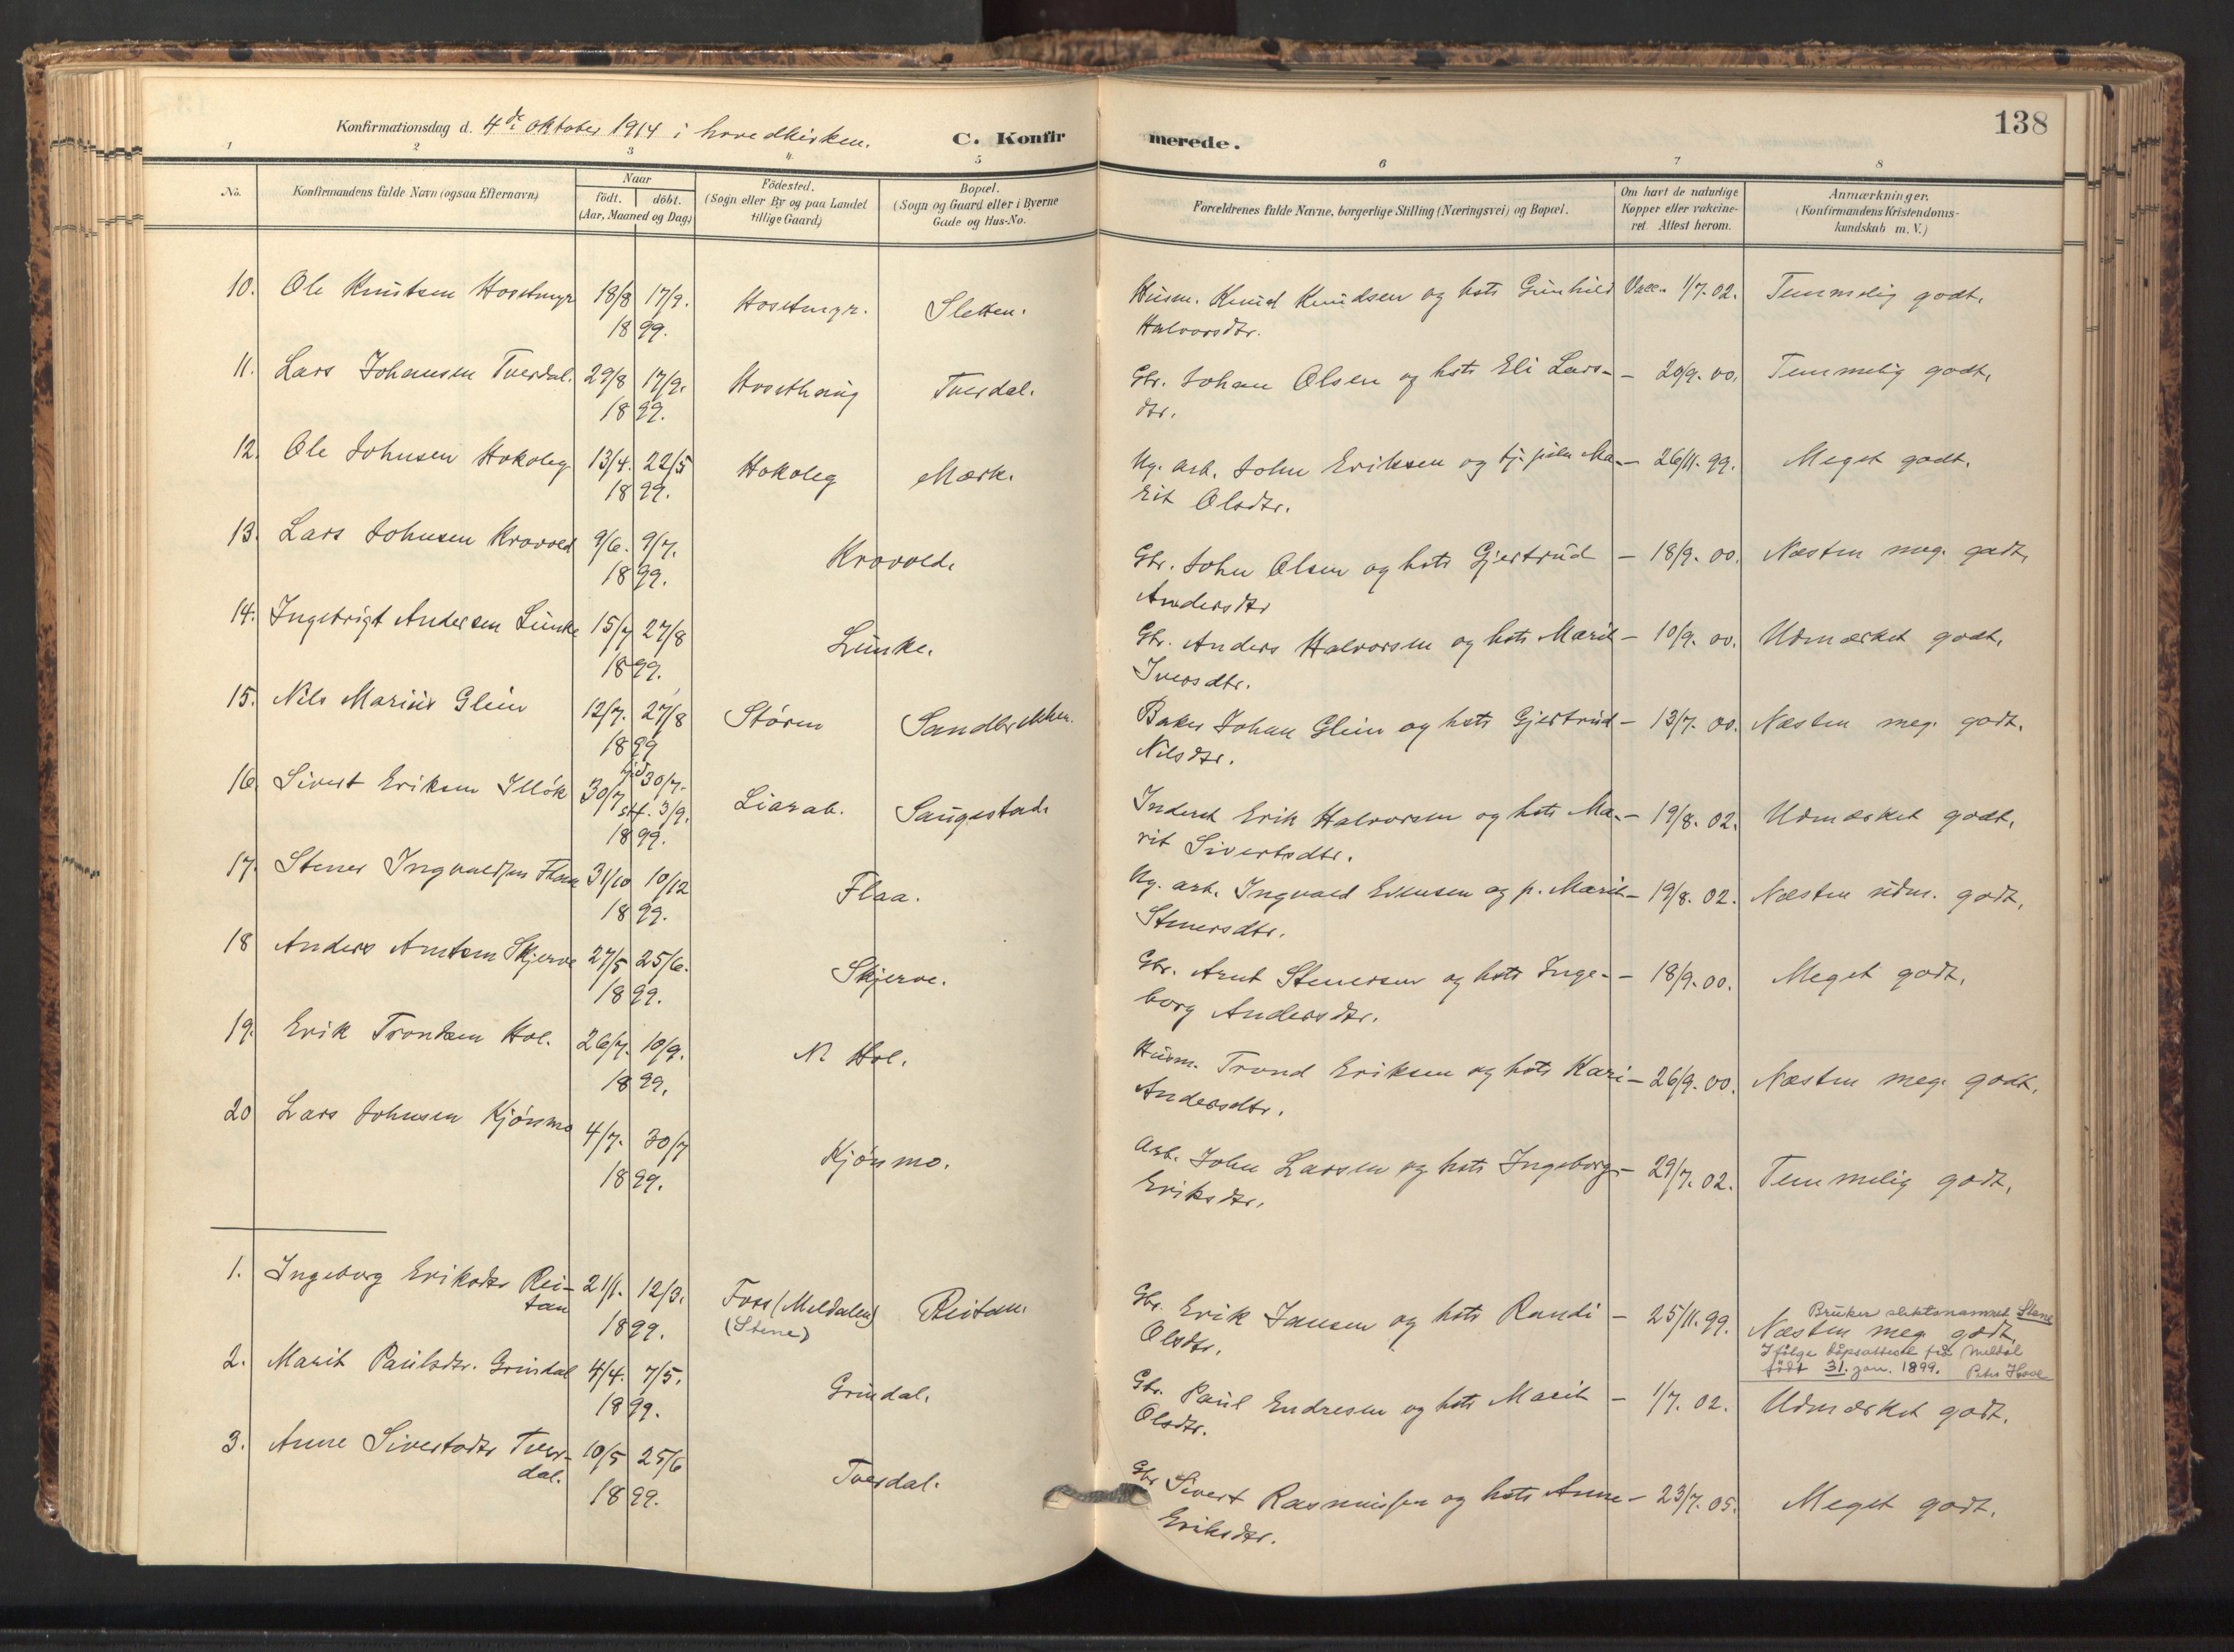 138
Konfirmationsdag d. 4de oktober 1914 i hovedkirken. C. Konfirmerede.
1 2 3 4. 5 6 7 8
No. Konfirmandens fulde Navn (ogsaa Efternavn) Naar födt. döbt. (Aar, Maaned og Dag) Födested. (Sogn eller By og paa Landet tillige Gaard) Bopæl. (Sogn og Gaard eller i Byerne Gade og Hus-No. Forældrenes fulde Navne, borgerlige Stilling (Næringsvei) og Bopæl. Om havt de naturlige Kopper eller vakcineret. Attest herom. Anmærkninger. (Konfirmandens Kristendomskundskab m. V.)
10. Ole Knutsen Hosetmyr 18/8 17/9. Hosetmyr. Sletten. Husm. Knud Knudsen og hstr Gunhild Vacc. 1/7. 02. Temmelig godt.
1899. Halvorsdtr.
11. Lars Johansen Tverdal. 29/8 17/9. Hosethaug Tverdal. Gbr. Johan Olsen og hstr Eli Lars- – 20/9. 00. Temmelig godt.
1899. dtr.
12. Ole Johnsen Hokoleg 13/4. 22/5 Hokoleg Mærk. Ug. arb. John Eriksen og tj. pike Ma- – 26/11. 99. Meget godt.
1899. rit Olsdtr.
13. Lars Johnsen Krovold 9/6. 9/7. Krovold. Gbr. John Olsen og hstr Gjertrud – 18/9. 00. Næsten meg. godt.
1899. Andersdtr
14. Ingebrigt Andersen Lunke 15/7 27/8 Lunke. Gbr. Anders Halvorsen og hstr Marit – 10/9. 00. Udmærket godt.
1899. Iversdtr.
15. Nils Marius Glein 12/7. 27/8 Støren Sandbrekken. Baker Johan Glein og hstr Gjertrud – 13/7. 00. Næsten meg. godt.
1899 Nilsdtr.
16. Sivert Eriksen Illøk 30/7 hjd 30/7. stf. 3/9. Liarab. Saugestad. Inderst Erik Halvorsen og hstr Ma- – 19/8. 02. Udmærket godt.
1899. rit Sivertsdtr.
17. Stener Ingvaldsen Flaa 31/10 10/12 Flaa. Ug. arb. Ingvald Evensen og p. Marit – 19/8. 02. Næsten udm. godt.
1899. Stenersdtr.
18 Anders Arntsen Skjerve 27/5 25/6. Skjerve. Gbr. Arnt Stenersen og hstr Inge- – 18/9. 00. Meget godt.
1899. borg Andersdtr.
19. Erik Trondsen Hol. 26/7. 10/9. N. Hol. Husm. Trond Eriksen og hstr Kari – 26/9. 00. Næsten meg. godt.
1899. Andersdtr.
20 Lars Johnsen Kjønsmo 4/7. 30/7 Kjønsmo. Arb. John Larsen og hstr Ingeborg – 29/7. 02. Temmelig godt.
1899. Eriksdtr.
1. Ingeborg Eriksdtr Rei- 21/1. 12/3. Foss (Meldalen) Reitan. Gbr. Erik Jansen og hstr Randi – 25/11. 99. Bruker slektsnamnet Stene
tan 1899. (Stene) Olsdtr. Næsten meg. godt.
Ifølge dåpsattest frå Meldal
født 31. jan. 1899.
2. Marit Paulsdtr. Grindal 4/4. 7/5. Grindal. Gbr. Paul Endresen og hstr Marit – 1/7. 02. Udmærket godt.
1899. Olsdtr.
3. Anne Sivertsdtr Tver- 10/5 25/6 Tverdal. Gbr Sivert Rasmussen og hstr Anne – 23/7. 05. Meget godt.
dal. 1899. Eriksdtr.